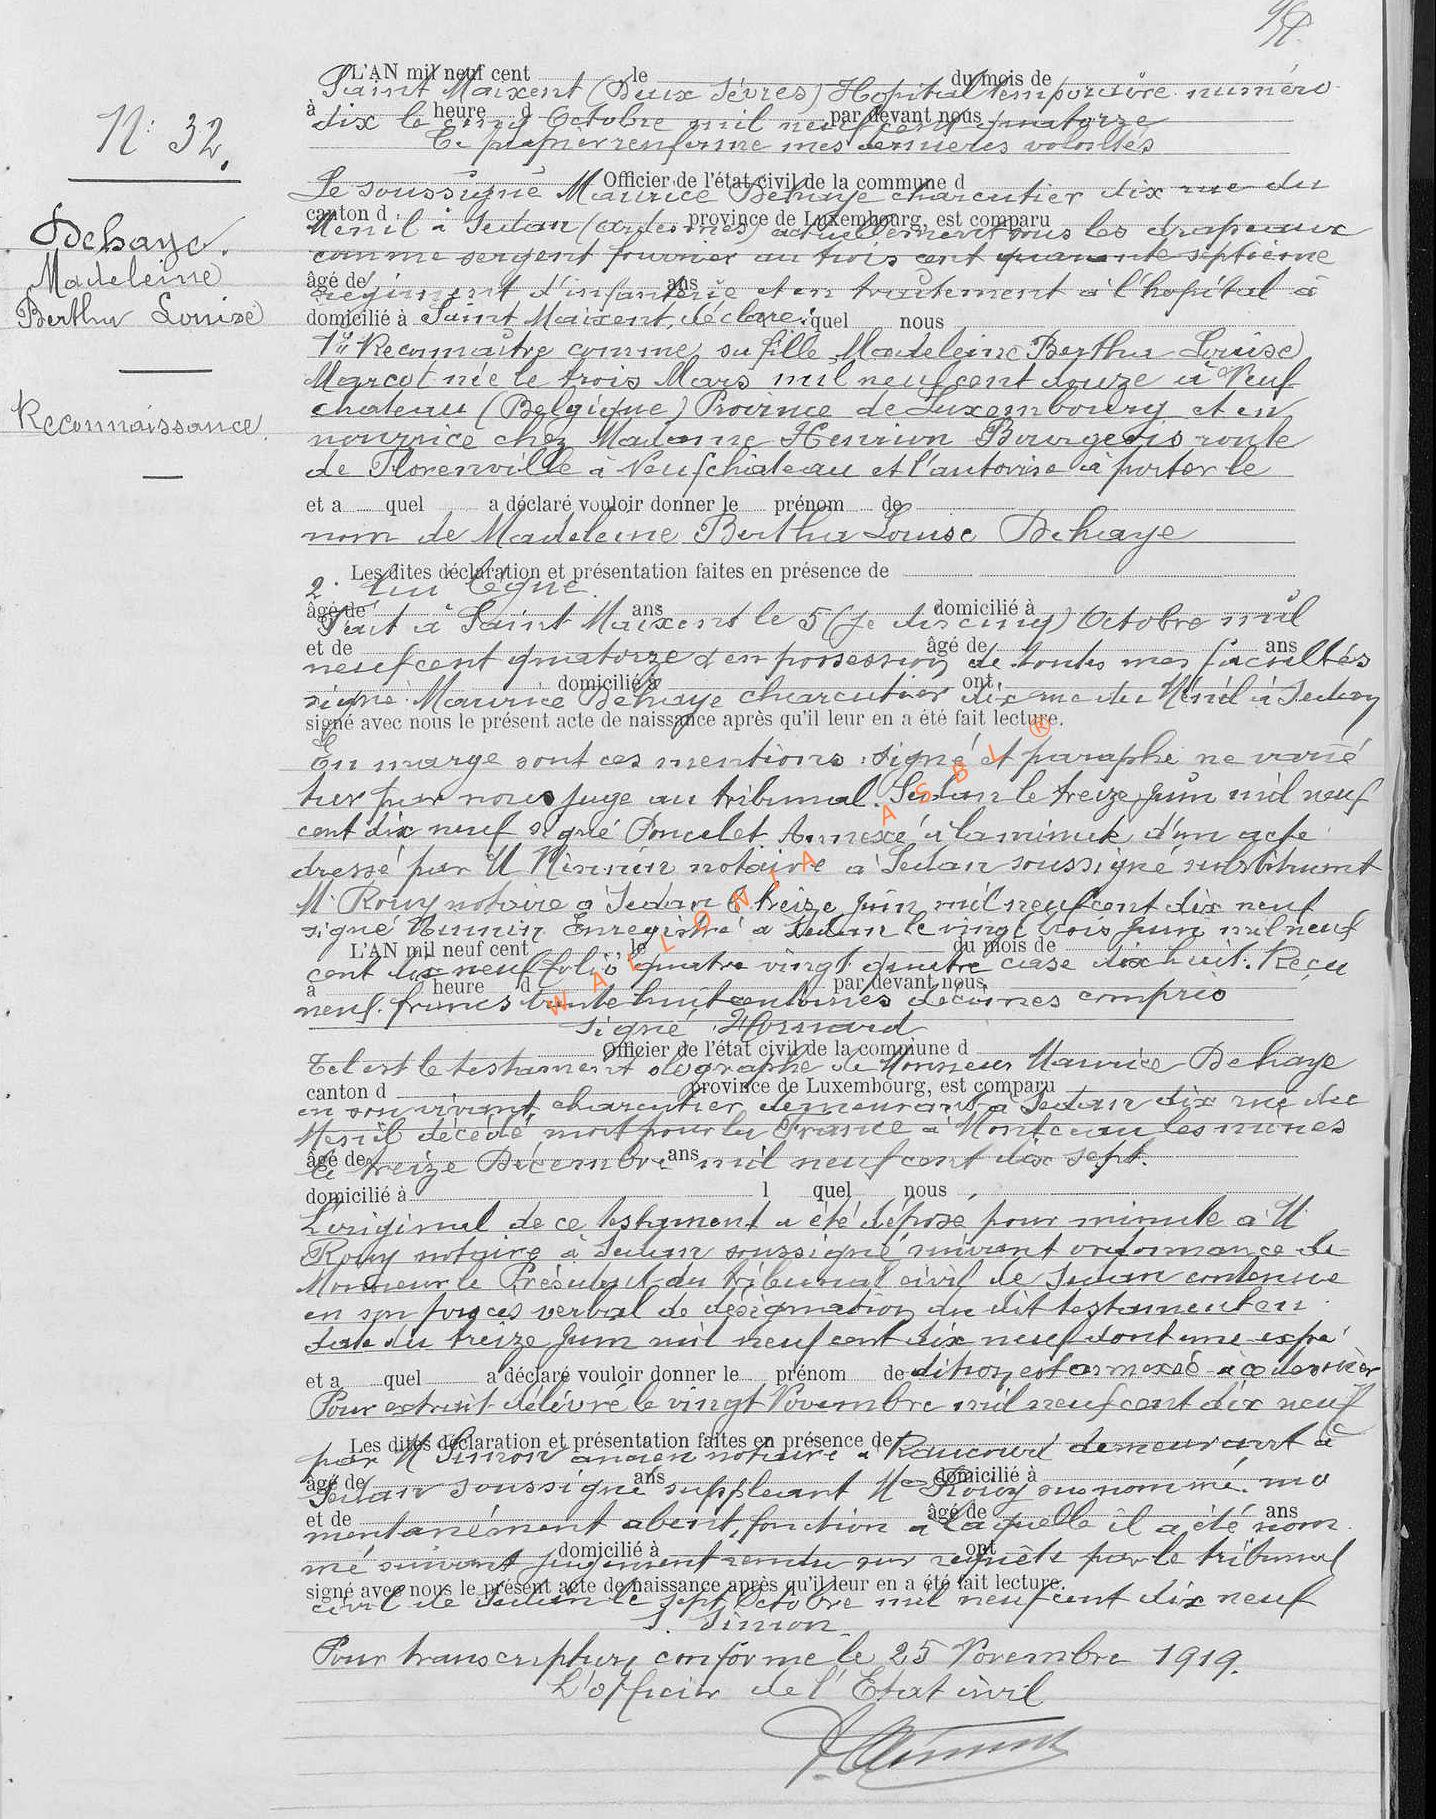 N° 32.
Dehaye.
Madeleine
Bertha Louise
Reconnaissance.
L'AN mil neuf cent le du mois de
Saint Maixent (Deux Sèvres) Hopital temporaire numéro
à heure d par devant nous
dix le cinq Octobre mil neuf cent quatorze
Ce papier renferme mes dernieres volontés
Officier de l'état civil de la commune d
Le soussigné Maurice Dehaye charcutier dix rue du
canton d province de Luxembourg, est comparu
Ménil à Sedan (ardennes) actuellement sous les drapeaux
comme sergent fourrier au trois cent quarante septième
âgé de ans
régiment d'infanterie et en traitement à l'hopital à
domicilié à Saint Maixent, déclare: quel nous
1° Reconnaître comme sa fille Madeleine Bertha Louise
Marcot née le trois Mars mil neuf cent douze à Neuf
chateau (Belgique) Province de Luxembourg et en
nourrice chez Madame Henrion Bourgeois route
de Florenville à Neufchateau et l'autorise à porter le
et a quel a déclaré vouloir donner le prénom de
nom de Madeleine Bertha Louise Dehaye
Les dites déclaration et présentation faites en présence de
2° Lui légue.
âgé de ans domicilié à
Fait à Saint Maixent le 5 (je dis cinq) Octobre mil
et de âgé de ans
neuf cent quatorze et en possession de toutes mes facultés
domicilié à ont
signé Maurice Dehaye charcutier dix rue du Ménil à Sedan
signé avec nous le présent acte de naissance après qu'il leur en a été fait lecture.
En marge sont ces mentions: signé et paraphé ne varié
tur par nous juge au tribunal. Sedan le treize juin mil neuf
cent dix neuf signé Poncelet Annexé à la minute d'un acte
dressé par M notaire à Sedan soussigné substituant
M. Rouy notaire à Sedan le treize juin mil neuf cent dix neuf
signé Enregistré à Sedan le vingt trois juin mil neuf
L'AN mil neuf cent le du mois de
cent dix neuf folio quatre vingt quatre case dix huit. Reçu
à heure d par devant nous,
neuf francs trente huit centimes décimes compris
signé
Officier de l'état civil de la commune d
Tel est le testament olographe de Monsieur Maurice Dehaye
canton d province de Luxembourg, est comparu
en son vivant charcutier demeurant à Sedan dix rue du
Menil décédé, mort pour la France à Montceau les mines
âgé de ans
le treize Décembre mil neuf cent dix sept.
domicilié à l quel nous
L'original de ce testament a été déposé pour minute à M
Rouy notaire à Sedan soussigné, suivant ordonnance de
Monsieur le Président du tribunal civil de Sedan contenue
en son procès verbal de désignation du dit testament en
date du treize juin mil neuf cent dix neuf dont une expé
et a quel a déclaré vouloir donner le prénom de dition est annexée à ce dernier
Pour extrait délivré le vingt Novembre mil neuf cent dix neuf
Les dites déclaration et présentation faites en présence de
par M Simon ancien notaire à Raucourt demeurant à
âgé de ans domicilié à
Sedan soussigné suppléant Me Rouy susnommé. mo
et de âgé de ans
mentanément absent, fonction à laquelle il a été nom
domicilié à ont
mé suivant jugement rendu sur requête par le tribunal
signé avec nous le présent acte de naissance après qu'il leur en a été fait lecture.
civil de Sedan le sept Octobre mil neuf cent dix neuf
S. Simon
Pour transcription conforme le 25 Novembre 1919.
L'officier de l'Etat civil
WALLONIA ASBL ®